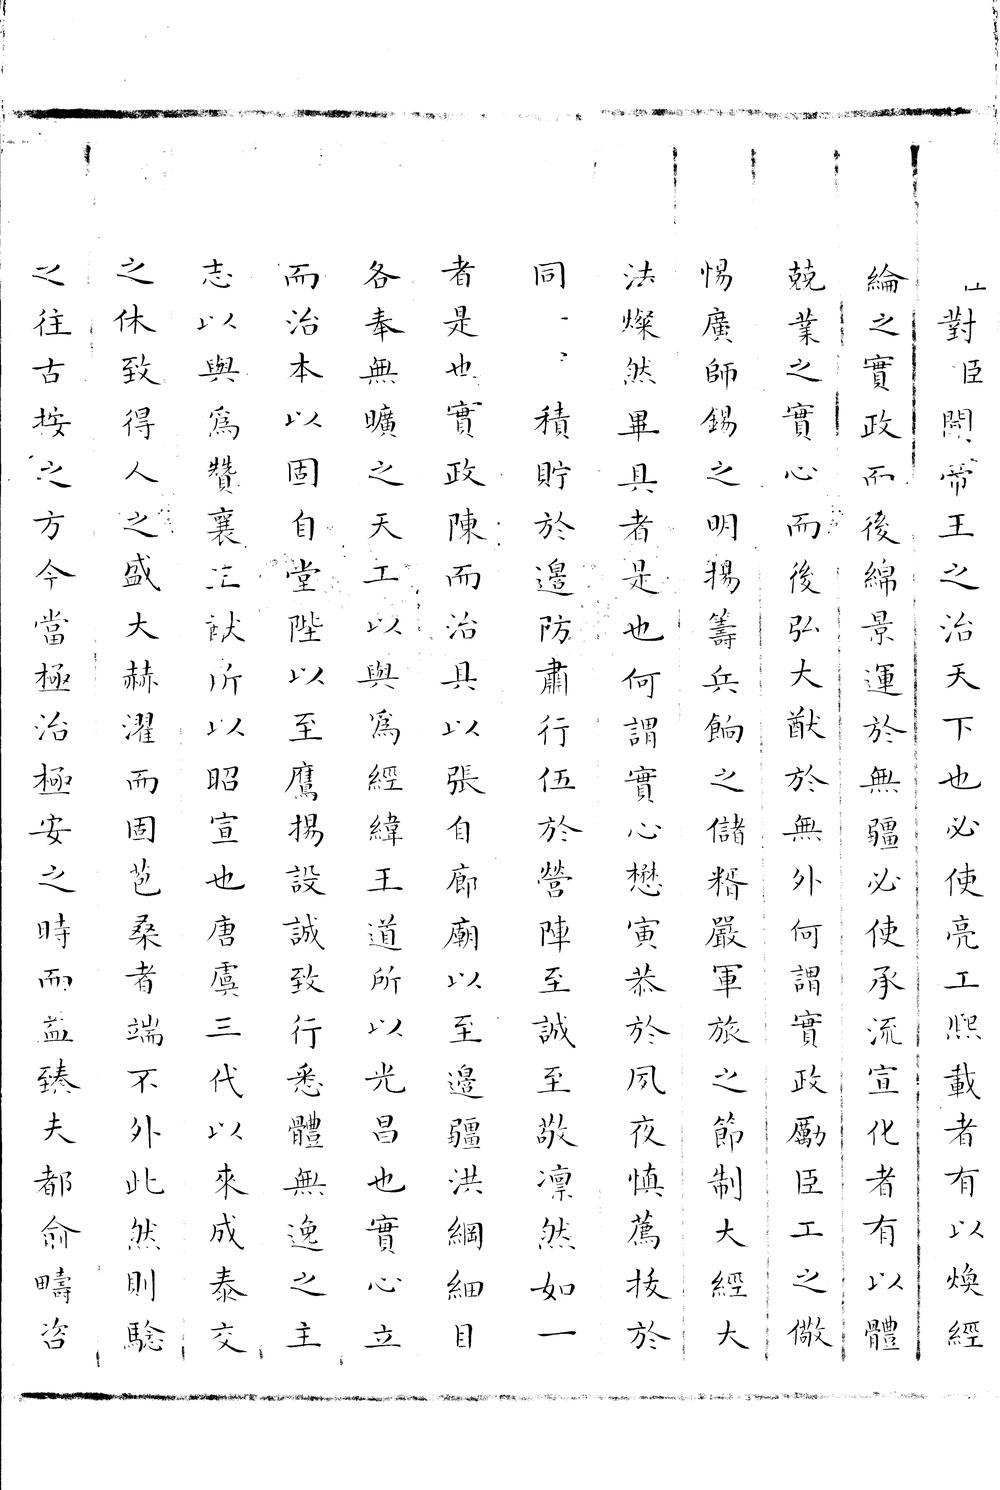 對臣聞帝王之治天下也必使亮工熙載者有以煥經
綸之實政而後綿景運於無疆必使承流宣化者有以體
兢業之實心而後弘大猷於無外何謂實政勵臣工之儆
惕廣師錫之明揚籌兵餉之儲糈嚴軍旅之節制大經大
法燦然畢具者是也何謂實心懋寅恭於夙夜慎薦拔於
同積貯於邊防肅行伍於營陣至誠至敬凛然如一
者是也實政陳而治具以張自廊廟以至邊疆洪綱細目
各奉無曠之天工以與爲經緯王道所以光昌也實心立
而治本以固自堂陛以至鷹揚設誠致行悉體無逸之主
志以與爲贊襄猷所以昭宣也唐虞三代以來成泰交
之休致得人之盛大赫濯而固苞桑者端不外此然則騐
之往古按之方今當極治極安之時而益臻夫都俞疇咨